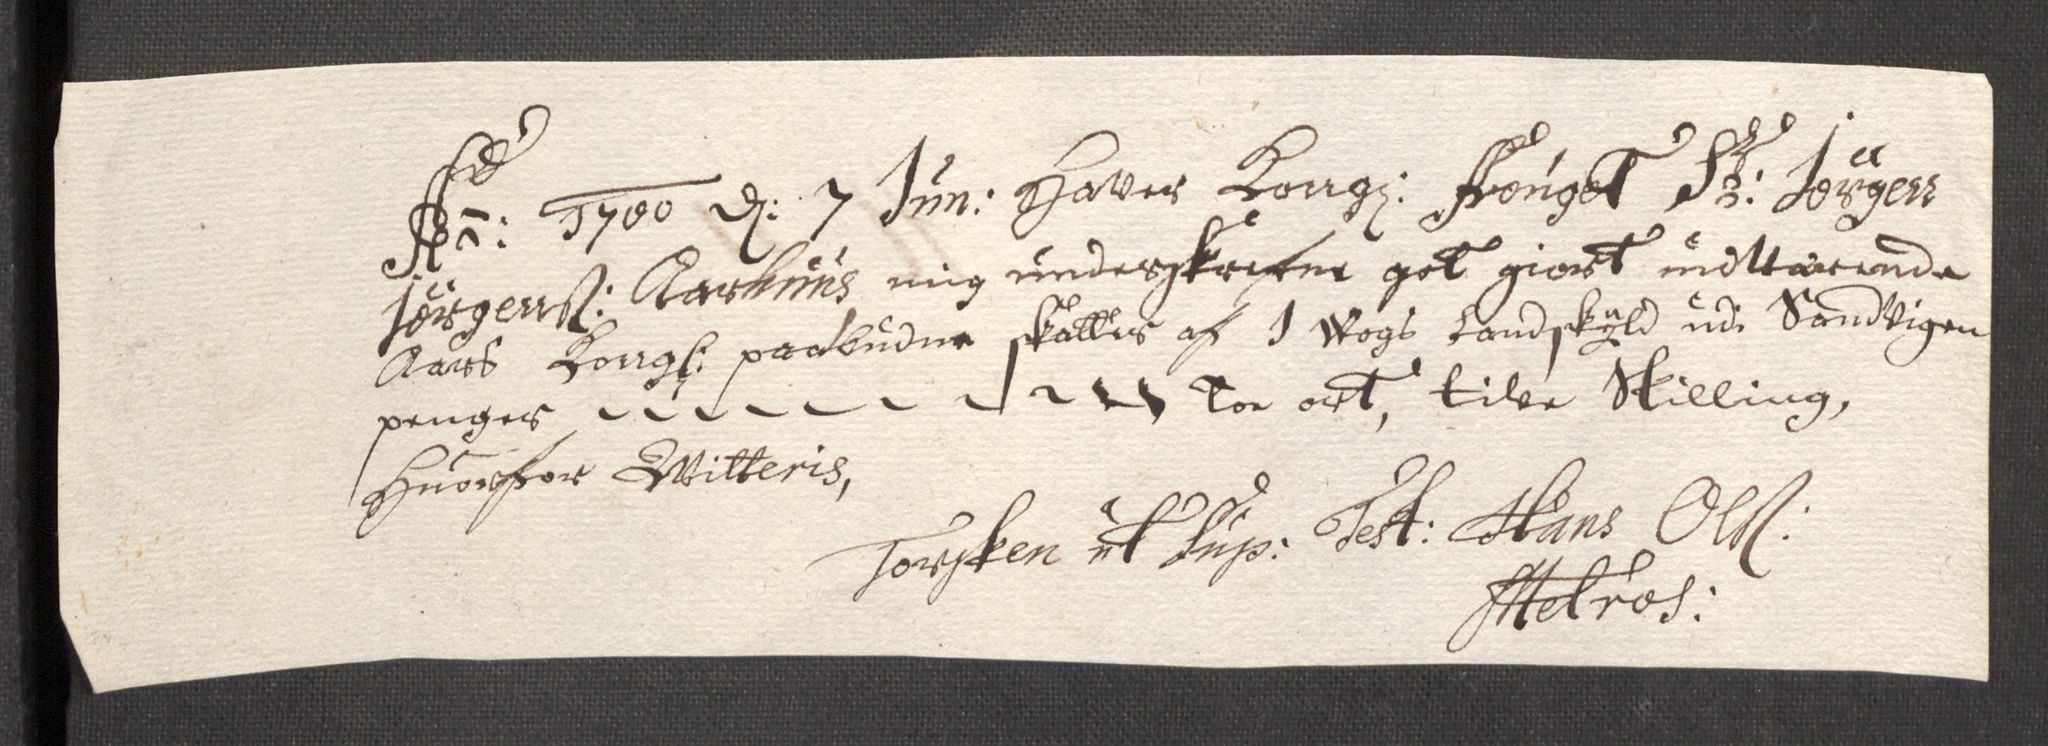 Aō: 1700 d: 7 Jun: Haver Kongl: Fougot Sr: Jörgen
Jörgenß: Aarhuus mig underskrefne got giort indverende
Aars Kongl: paabudne skatter af 1 Wogs Landskyld udi Sandvigen
penger Toe ort, tilve Skilling,
Huorfor Qvitteris,
Torsken ut sup: Test: Hans Olß:
Metros: